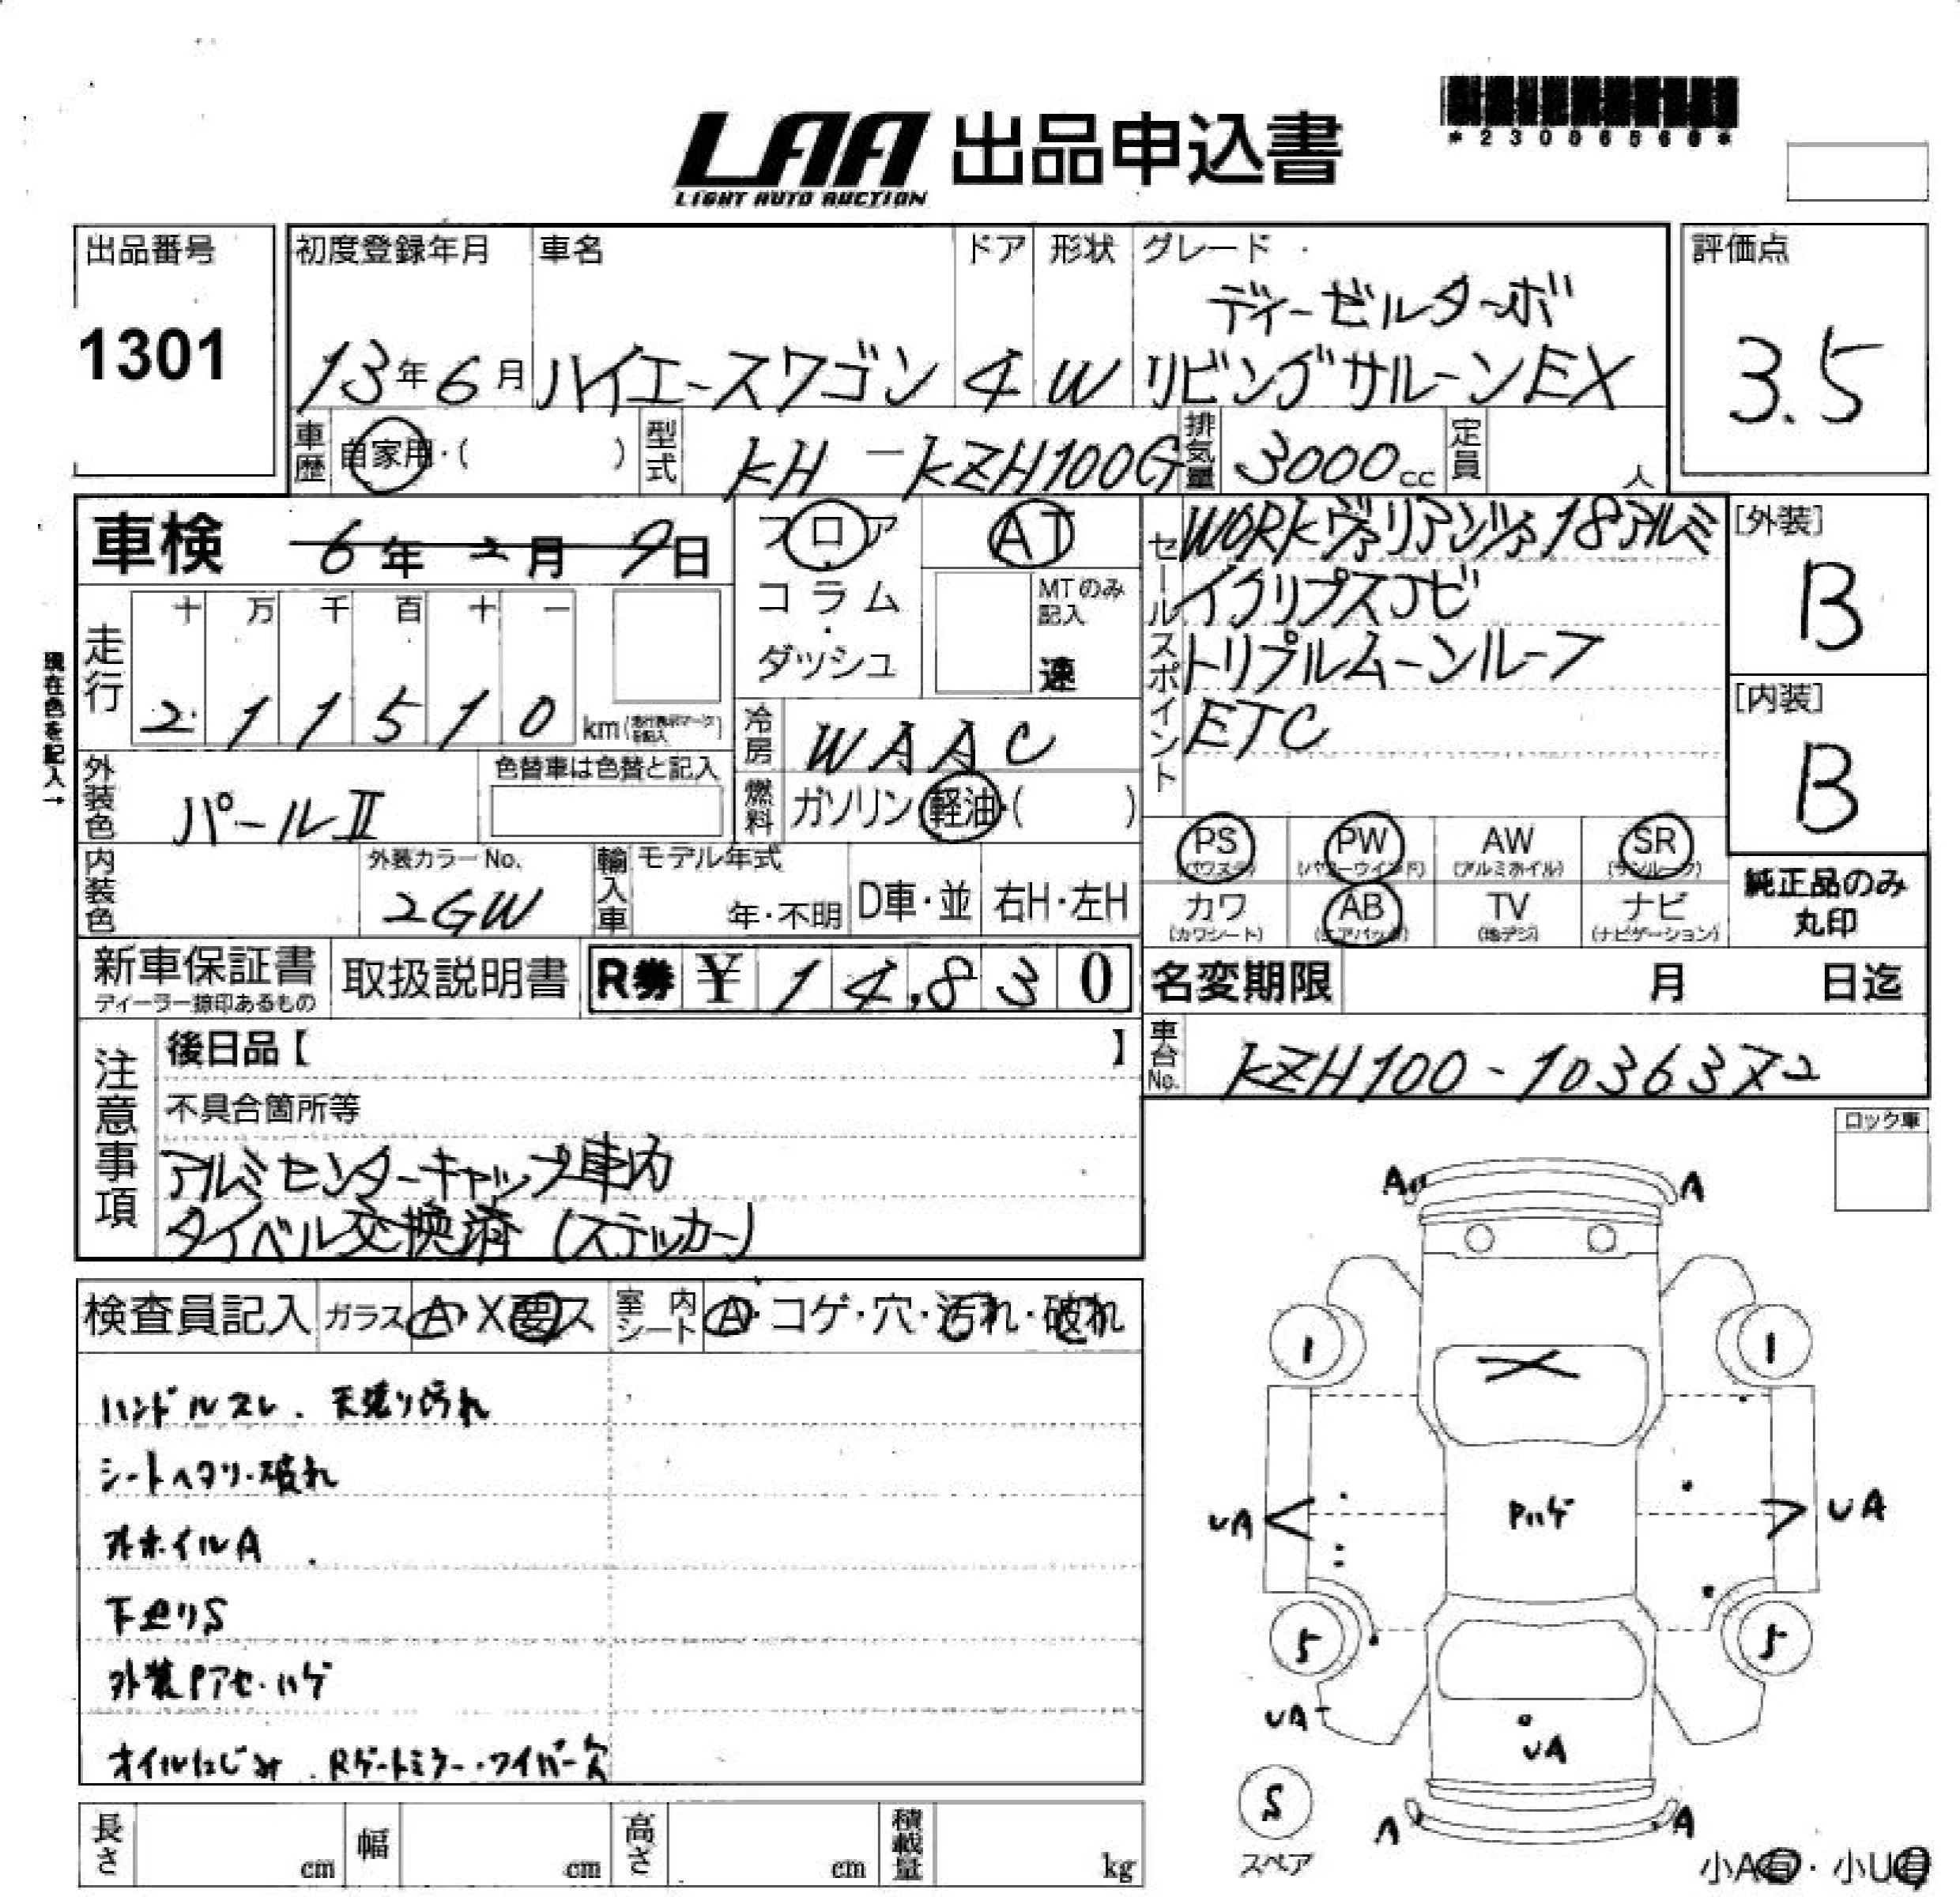 LAA 出品申込書
LIGHT AUTO AUCTION
出品番号
1301
初度登録年月 車名 ドア 形状 グレード
ディーゼルターボ
13年6月 ハイエースワゴン 4 W リビングサルーンEX
評価点
3.5
車歴 自家用・( ) 型式 KH-KZH100G 排気量 3000cc 定員 人
車検 6年2月9日
フロア
コラム
・
ダッシュ
AT
MTのみ
記入
速
セールスポイント
WORKヴァリアンツァ18アルミ
イクリプスナビ
トリプルムーンルーフ
ETC
[外装]
B
[内装]
B
純正品のみ
丸印
現在色を記入→
走行 十 万 千 百 十 一
2 1 1 5 1 0 km
冷房 WAAC
燃料 ガソリン・軽油・( )
外装色 パールⅡ
色替車は色替と記入
内装色
外装カラーNo.
2GW
輸入車 モデル年式
年・不明 D車・並 右H・左H
PS PW AW SR
(パワステ) (パワーウインド) (アルミホイル) (サンルーフ)
カワ AB TV ナビ
(カワシート) (エアバッグ) (地デジ) (ナビゲーション)
新車保証書
ディーラー捺印あるもの
取扱説明書 R券 ¥ 14,830
名変期限 月 日迄
車台No. KZH100-1036372
注意事項
後日品【 】
不具合箇所等
アルミセンターキャップ車内
タイベル交換済 (ステッカー)
ロック車
検査員記入 ガラス A・X要ス 室内シート A・コゲ・穴・汚れ・破れ
ハンドルスレ. 天張り汚れ
シートヘタリ・破れ
外ホイルA
下廻りS
外装Pアセ・ハゲ
オイルにじみ. Rゲートミラー・ワイパー欠
A A
1 1
X
UA Pハゲ UA
5 5
UA
UA
S
スペア
A A
小A有・小U有
長さ cm 幅 cm 高さ cm 積載量 kg